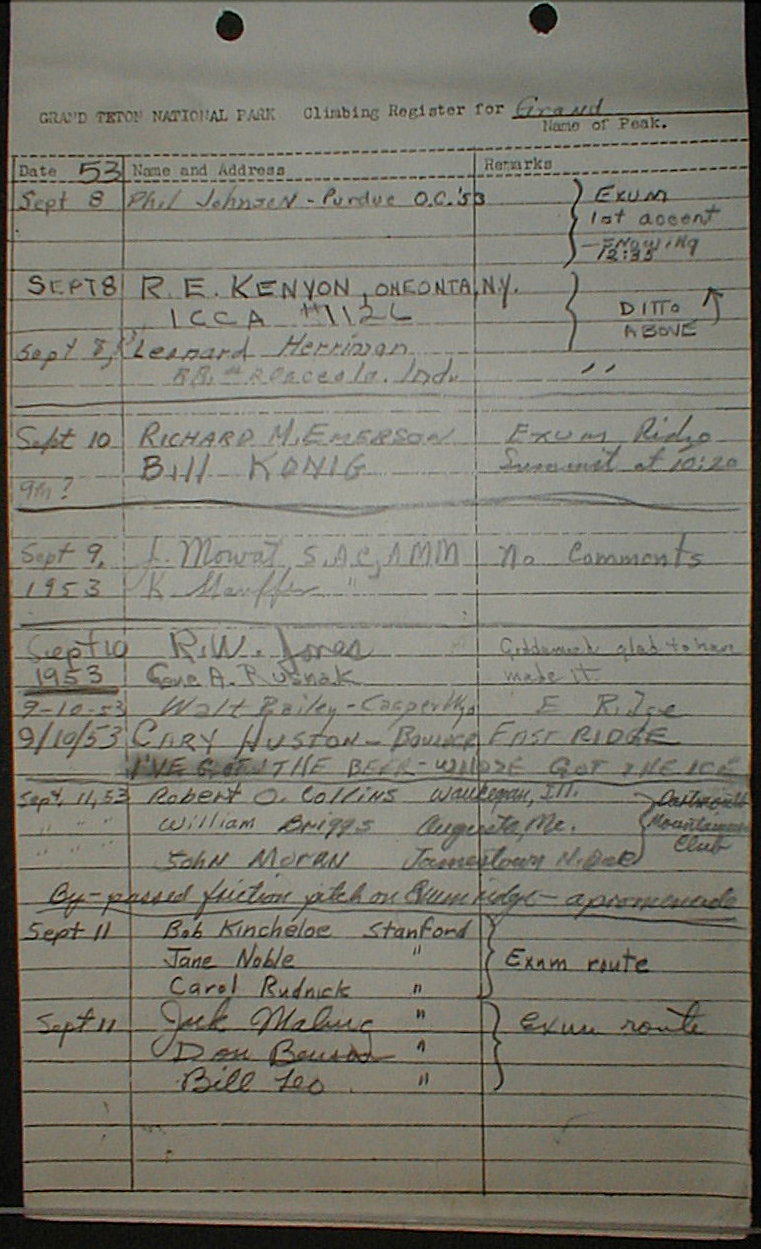 GRAND TETON NATIONAL PARK Climbing Register for Grand
Name of Peak.
Date 53 Name and Address Remarks
Sept 8 Phil Johnsen - Purdue O.C. '53 Exum
1st accent
- Snowing
12:35
SEPT 8 R. E. KENYON, ONEONTA, N.Y. DITTO
ICCA #112L ABOVE
Sept 8, Leonard Herriman
RR. # Osceola. Ind. "
Sept 10 RICHARD M. EMERSON Exum Ridge
Bill KONIG Summit at 10:20
9th?
Sept 9, J. Mowat, S.A.C, AMM No Comments
1953 K "
Sept 10 R.W. Jones glad to have
1953 Gene A. Rusnak made it.
9-10-53 Walt Bailey - Casper Wyo E Ridge
9/10/53 CARY HUSTON - BOULDER EAST RIDGE
I'VE GOT THE BEER - WHOSE GOT THE ICE
Sept. 11, 53 Robert O. Collins Waukegan, Ill. Dartmouth
" " " William Briggs Augusta, Me. Mountaineering
" " " John Moran Jamestown N. Dak Club
By-passed friction pitch on Exum ridge - a promenade
Sept 11 Bob Kincheloe Stanford
Jane Noble " Exum route
Carol Rudnick "
Sept 11 Jack " Exum route
Don "
Bill Leo "